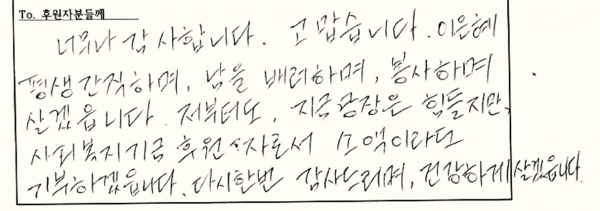 To. 후원자분들께
너무나 감사합니다. 고맙습니다. 이은혜
평생간직하며, 남을 배려하며, 봉사하며
살겠읍니다. 저부터도, 지금당장은 힘들지만,
사회복지기금 후원자로서 소액이라도
기부하겠읍니다. 다시한번 감사드리며, 건강하게 살겠읍니다.